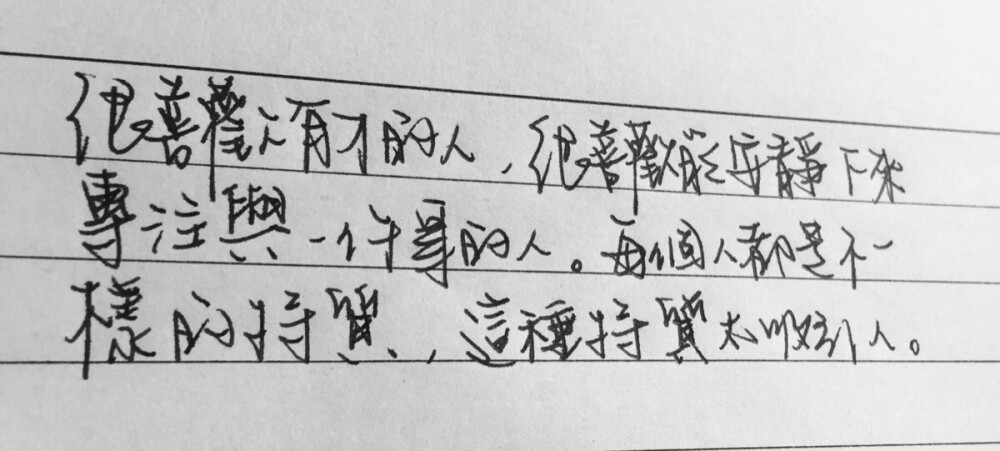 他喜歡有才的人，他喜歡能安靜下來
專注與一件事的人。每個人都是不一
樣的特質，這種特質太吸引人。